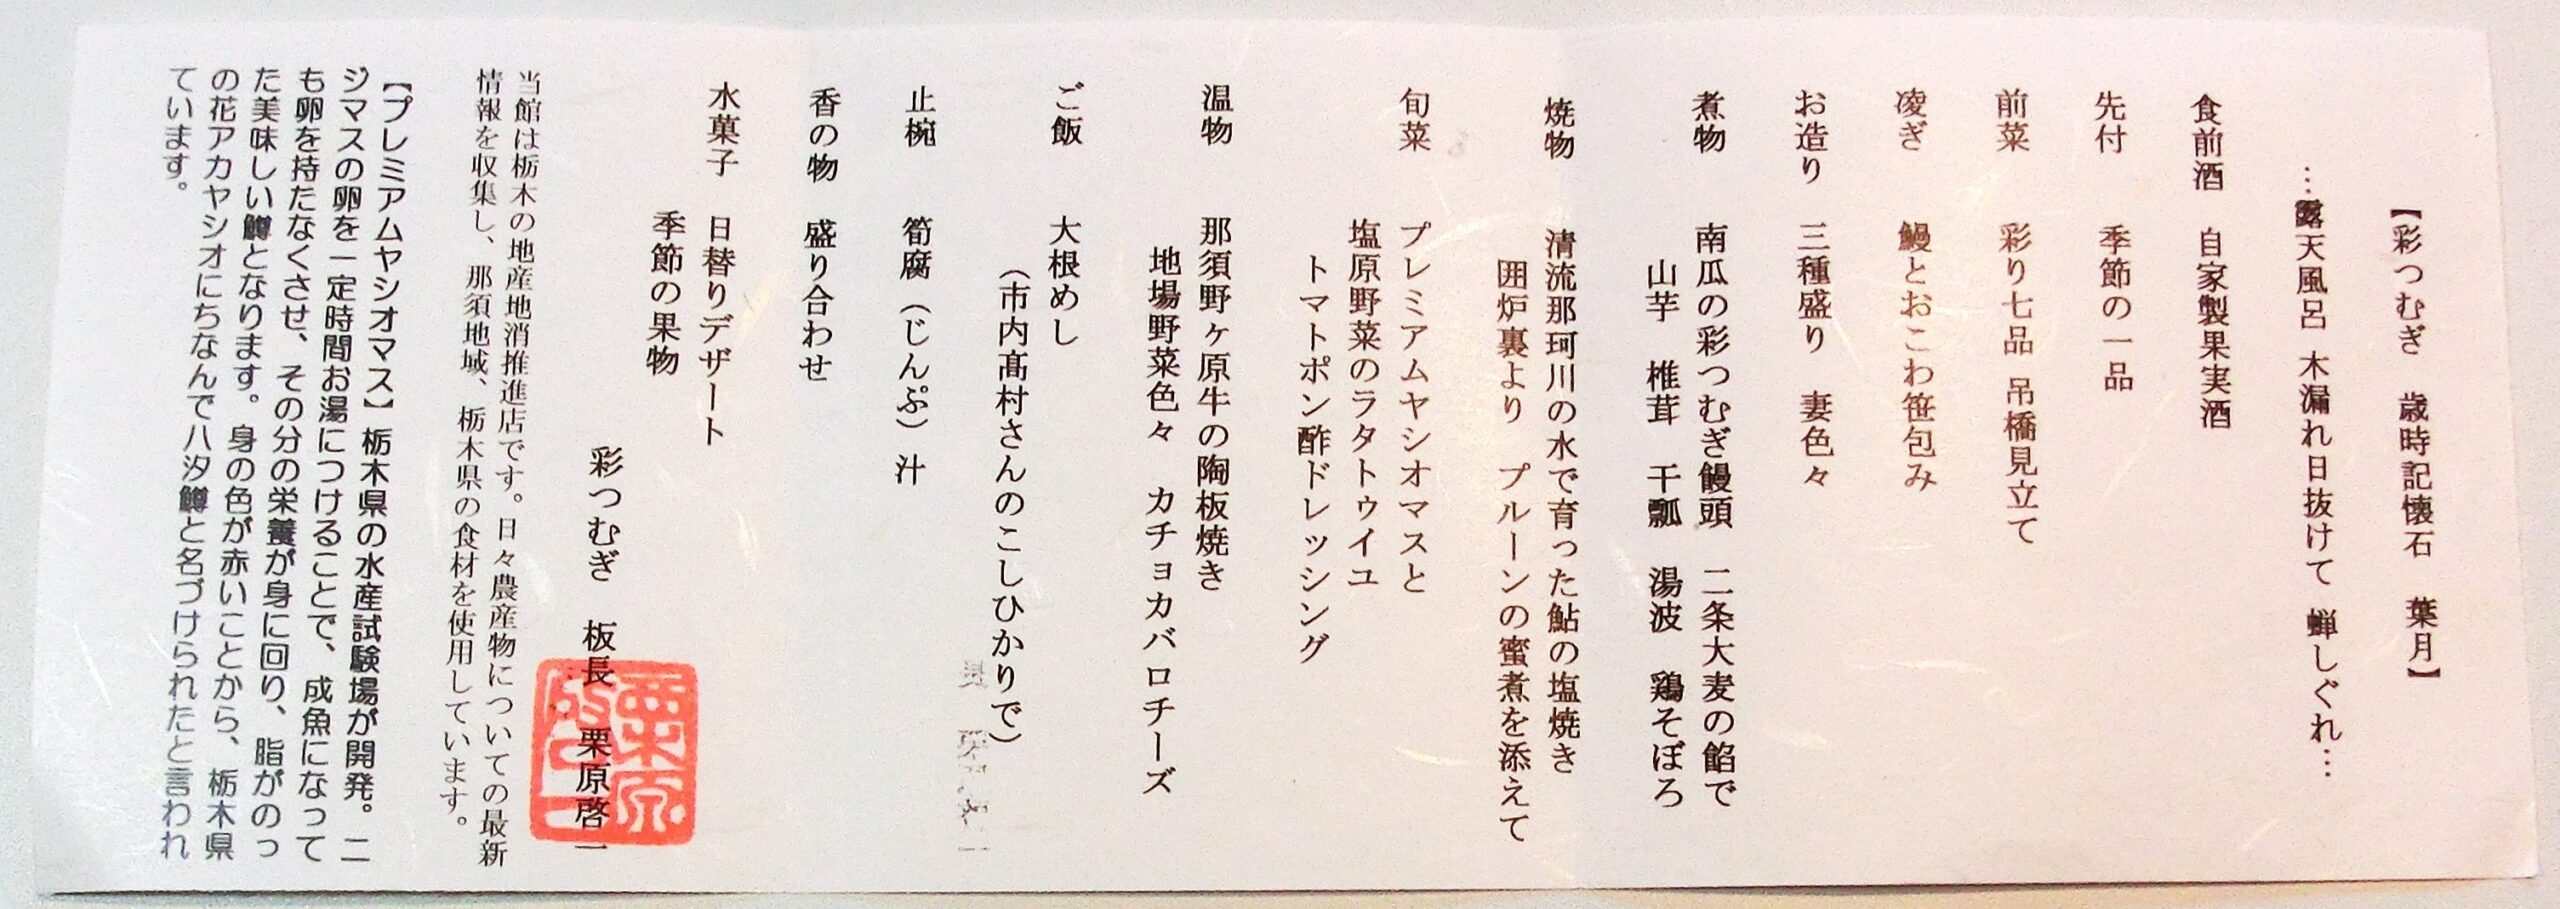 【彩つむぎ　歳時記懐石　葉月】
…露天風呂 木漏れ日抜けて 蝉しぐれ…
食前酒　自家製果実酒
先付　季節の一品
前菜　彩り七品 吊橋見立て
凌ぎ　鰻とおこわ笹包み
お造り　三種盛り　妻色々
煮物　南瓜の彩つむぎ饅頭　二条大麦の餡で
山芋　椎茸　干瓢　湯波　鶏そぼろ
焼物　清流那珂川の水で育った鮎の塩焼き
囲炉裏より　プルーンの蜜煮を添えて
旬菜　プレミアムヤシオマスと
塩原野菜のラタトゥイユ
トマトポン酢ドレッシング
温物　那須野ヶ原牛の陶板焼き
地場野菜色々　カチョカバロチーズ
ご飯　大根めし
（市内髙村さんのこしひかりで）
止椀　筍腐（じんぷ）汁
香の物　盛り合わせ
水菓子　日替りデザート
季節の果物
彩つむぎ　板長　栗原啓一
当館は栃木の地産地消推進店です。日々農産物についての最新
情報を収集し、那須地域、栃木県の食材を使用しています。
【プレミアムヤシオマス】栃木県の水産試験場が開発。ニ
ジマスの卵を一定時間お湯につけることで、成魚になって
も卵を持たなくさせ、その分の栄養が身に回り、脂がのっ
た美味しい鱒となります。身の色が赤いことから、栃木県
の花アカヤシオにちなんで八汐鱒と名づけられたと言われ
ています。